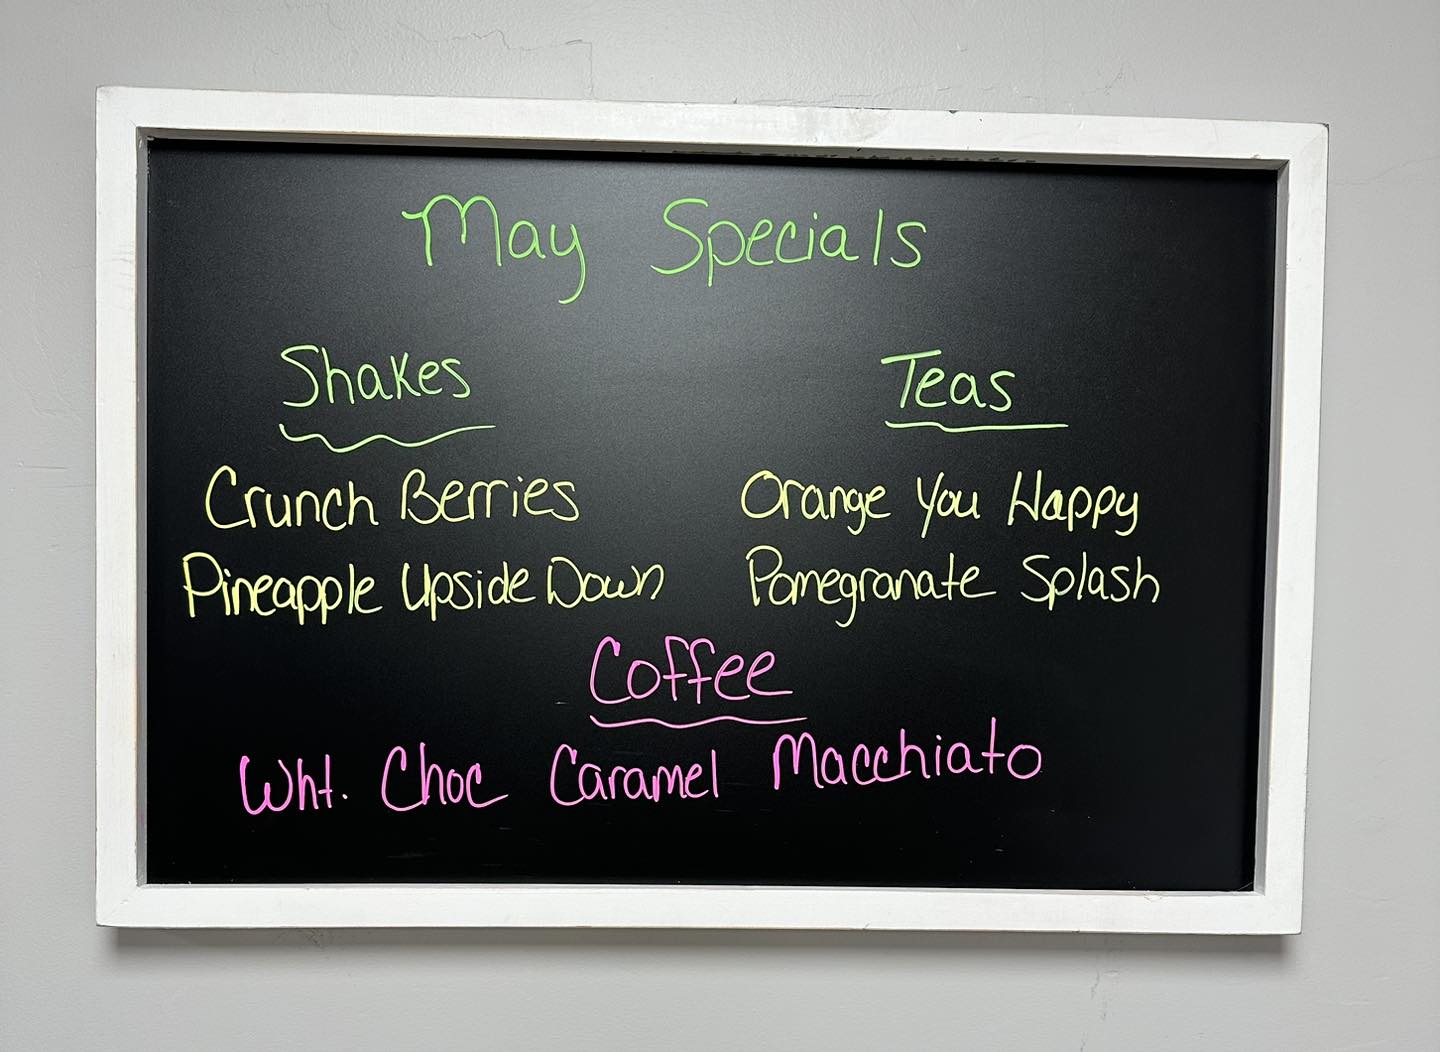 May Specials
Shakes
Crunch Berries
Pineapple Upside Down
Teas
Orange You Happy
Pomegranate Splash
Coffee
Wht. Choc Caramel Macchiato